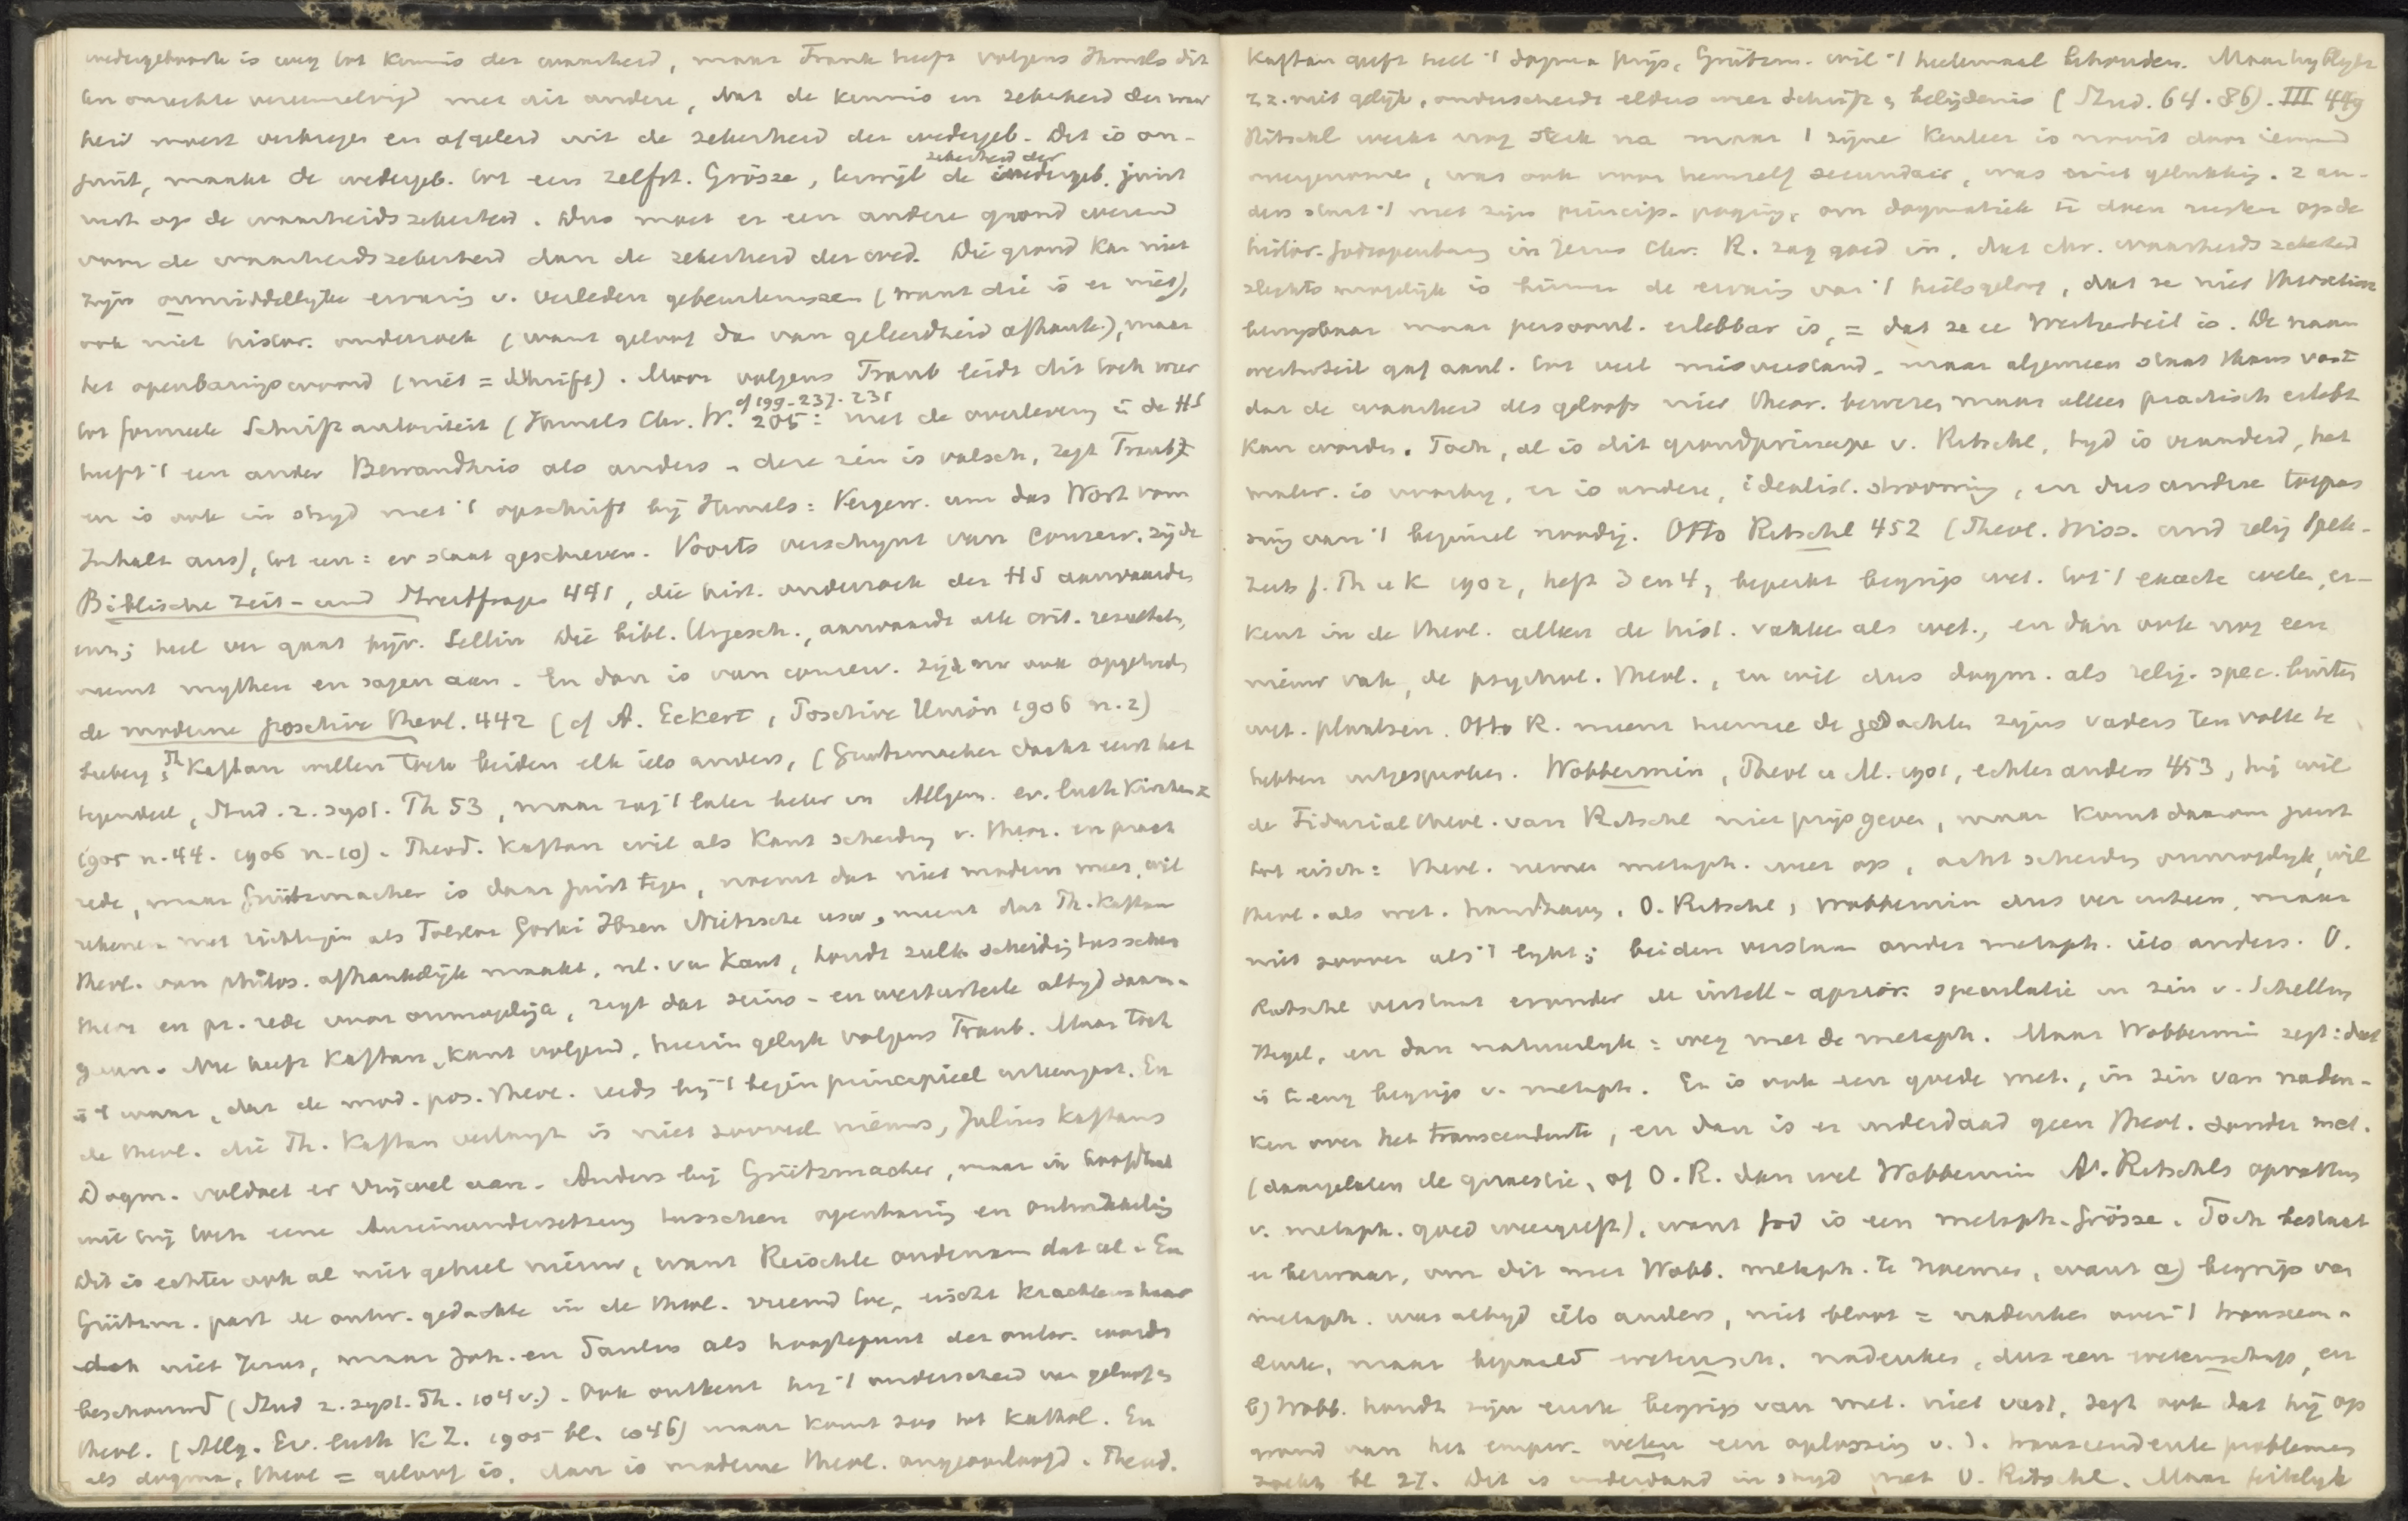 wedergeboorte is weg tot kennis der waarheid, maar Frank heeft volgens Ihmels dit
ten onrechte vereenzelvigd met dit andere, dat de kennis en zekerheid der waar
heid moest verkregen en afgeleid uit de zekerheid der wedergeb. Dit is on-
juist, maakt de wedergeb. tot een zelfst. Grösze, terwijl de zekerheid der wedergeb. juist
rust op de waarheidszekerheid. Dus moet er een andere grond wezen
voor de waarheidszekerheid dan de zekerheid der wed. Die grond kan niet
zijn onmiddellijke ervaring v. verleden gebeurtenissen (want die is er niet),
ook niet histor. onderzoek (want geloof dan van geleerdheid afhank.), maar
het openbaringswoord (niet = Schrift). Maar volgens Traub leidt dit toch weer
tot formeele Schriftautoriteit (Ihmels Chr. W. 205: cf 199-237. 231 met de overlevering in de HS
heeft 't een ander Bewandtnis als anders - deze zin is valsch, zegt Traub
en is ook in strijd met 't opschrift bij Ihmels: Vergew. um das Wort vom
Inhalt aus), tot een: er staat geschreven. Voorts verschijnt van conserv. zijde
Biblische Zeit- und Streitfragen 441, die hist. onderzoek der HS aanvaarden
heel ver gaat bijv. Sellin Die bibl. Urgesch., aanvaardt alle crit. resultaten,
neemt mythen en sagen aan. En dan is van conserv. zijde nu ook opgetreden
de moderne positive theol. 442 (cf A. Eckert, Positive Union 1906 n. 2)
Seeberg, Th Kaftan willen toch beiden elk iets anders, (Grutzmacher dacht eerst het
tegendeel, Stud. z. syst. Th 53, maar zag 't later beter in Allgem. ev. luth Kirchenz
1905 n. 44. 1906 n. 10). Theod. Kaftan wil als Kant scheiding v. theor. en pract
rede, maar Grützmacher is daar juist tegen, noemt dat niet modern meer, wil
rekenen met richtingen als Tolstoi Gorki Ibsen Nietzsche usw, meent dat Th. Kaftan
theol. van philos. afhankelijk maakt, nl. van Kant, houdt zulk scheiding tusschen
theor en pr. rede voor onmogelijk, zegt dat seins- en werturteile altijd saam-
gaan. Nu heeft Kaftan, Kant volgend, hierin gelijk volgens Traub. Maar toch
is 't waar, dat de mod. pos. theol. reeds bij 't begin principieel uiteengaat. En
de theol. die Th. Kaftan verlangt is niet zooveel nieuws, Julius Kaftans
Dogm. voldoet er vrijwel aan. Anders bij Grützmacher, maar in hoofdzaak
wil hij toch eene Auseinandersetzung tusschen openbaring en ontwikkeling
Dit is echter ook al niet geheel nieuw, want Reischle ondernam dat al. En
Grützm. past de ontw. gedachte in de theol. vreemd toe, eischt krachtens haar
dat niet Jezus, maar Joh. en Paulus als hoogtepunt der ontw. worde
beschouwd (Stud z. syst. Th. 104 v.). Ook ontkent hij 't onderscheid van geloof en
theol. (Allg. Ev. luth KZ. 1905 bl. 1046) maar komt zoo tot Kathol. En
als dogma, theol = geloof is, dan is moderne theol. ongeoorloofd. Theod.
Kaftan geeft heel 't dogma prijs, Grützm. wil 't heelemaal behouden. Maar hij blijft
z.z. niet gelijk, onderscheidt elders weer Schrift en belijdenis (Stud. 64. 86). III 449
Ritschl werkt nog sterk na maar zijne Kenleer is nooit door iemand
overgenomen, was ook voor hemzelf secundair, was niet gelukkig. 't an-
ders staat 't met zijn princip. poging, om dogmatiek te doen rusten op de
histor. Godsopenbaring in Jezus Chr. R. zag goed in, dat chr. waarheidszekerheid
slechts mogelijk is binnen de ervaring van 't heilsgeloof, dat ze niet theoretisch
bewijsbaar maar persoonl. erlebbar is, = dat ze ee Werturteil is. De naam
werturteil gaf aanl. tot veel misverstand, maar algemeen staat thans vast
dat de waarheid des geloofs niet theor. bewezen maar alleen practisch erlebt
kan worden. Toch, al is dit grondprincipe v. Ritschl, tijd is veranderd, het
mater. is voorbij, er is andere, idealist. strooming, en dus andere toepas
sing van 't beginsel noodig. Otto Ritschl 452 (Theol. Wiss. und relig Spek-
Zeits f. Th u K 1902, heft 3 en 4, beperkt begrip wet. tot 't exacte weten, er-
kent in de theol. alleen de hist. vakken als wet., en dan ook nog een
nieuw vak, de psychol. theol., en wil dus dogm. als relig. spec. buiten
wet. plaatsen. Otto R. meent hiermee de gedachten zijns vaders ten volle te
hebben uitgesproken. Wobbermin, Theol u M. 1901, echter anders 453, hij wil
de Fiduzialtheol. van Ritschl niet prijs geven, maar komt daarom juist
tot eisch: theol. neme metaph. weer op, acht scheiding onmogelijk, wil
theol. als wet. handhaven. O. Ritschl, Wobbermin dus ver uiteen, maar
niet zoover als 't lijkt; beiden verstaan onder metaph. iets anders. O.
Ritschl verstaat eronder de intell-aprior. speculatie in zin v. Schelling
Hegel, en dan natuurlijk: weg met de metaph. Maar Wobbermin zegt: dat
is te eng begrip v. metaph. Er is ook een goede met., in zin van naden-
ken over het transcendente, en dan is er inderdaad geen theol. zonder met.
(daargelaten de quaestie, of O. R. dan wel Wobbermin A. Ritschls opvatting
v. metaph. goed weergeeft), want God is een metaph. Grösze. Toch bestaat
er bezwaar, om dit met Wobb. metaph. te noemen, want a) begrip van
metaph. was altijd iets anders, niet bloot = nadenken over 't transcen-
dente, maar bepaald wetensch. nadenken, dus een wetenschap, en
b) Wobb. houdt zijn eerste begrip van met. niet vast, zegt ook dat hij op
grond van het empir. weten een oplossing v. d. transcendente problemen
zoekt bl 27. Dit is inderdaad in strijd met O. Ritschl. Maar feitelijk